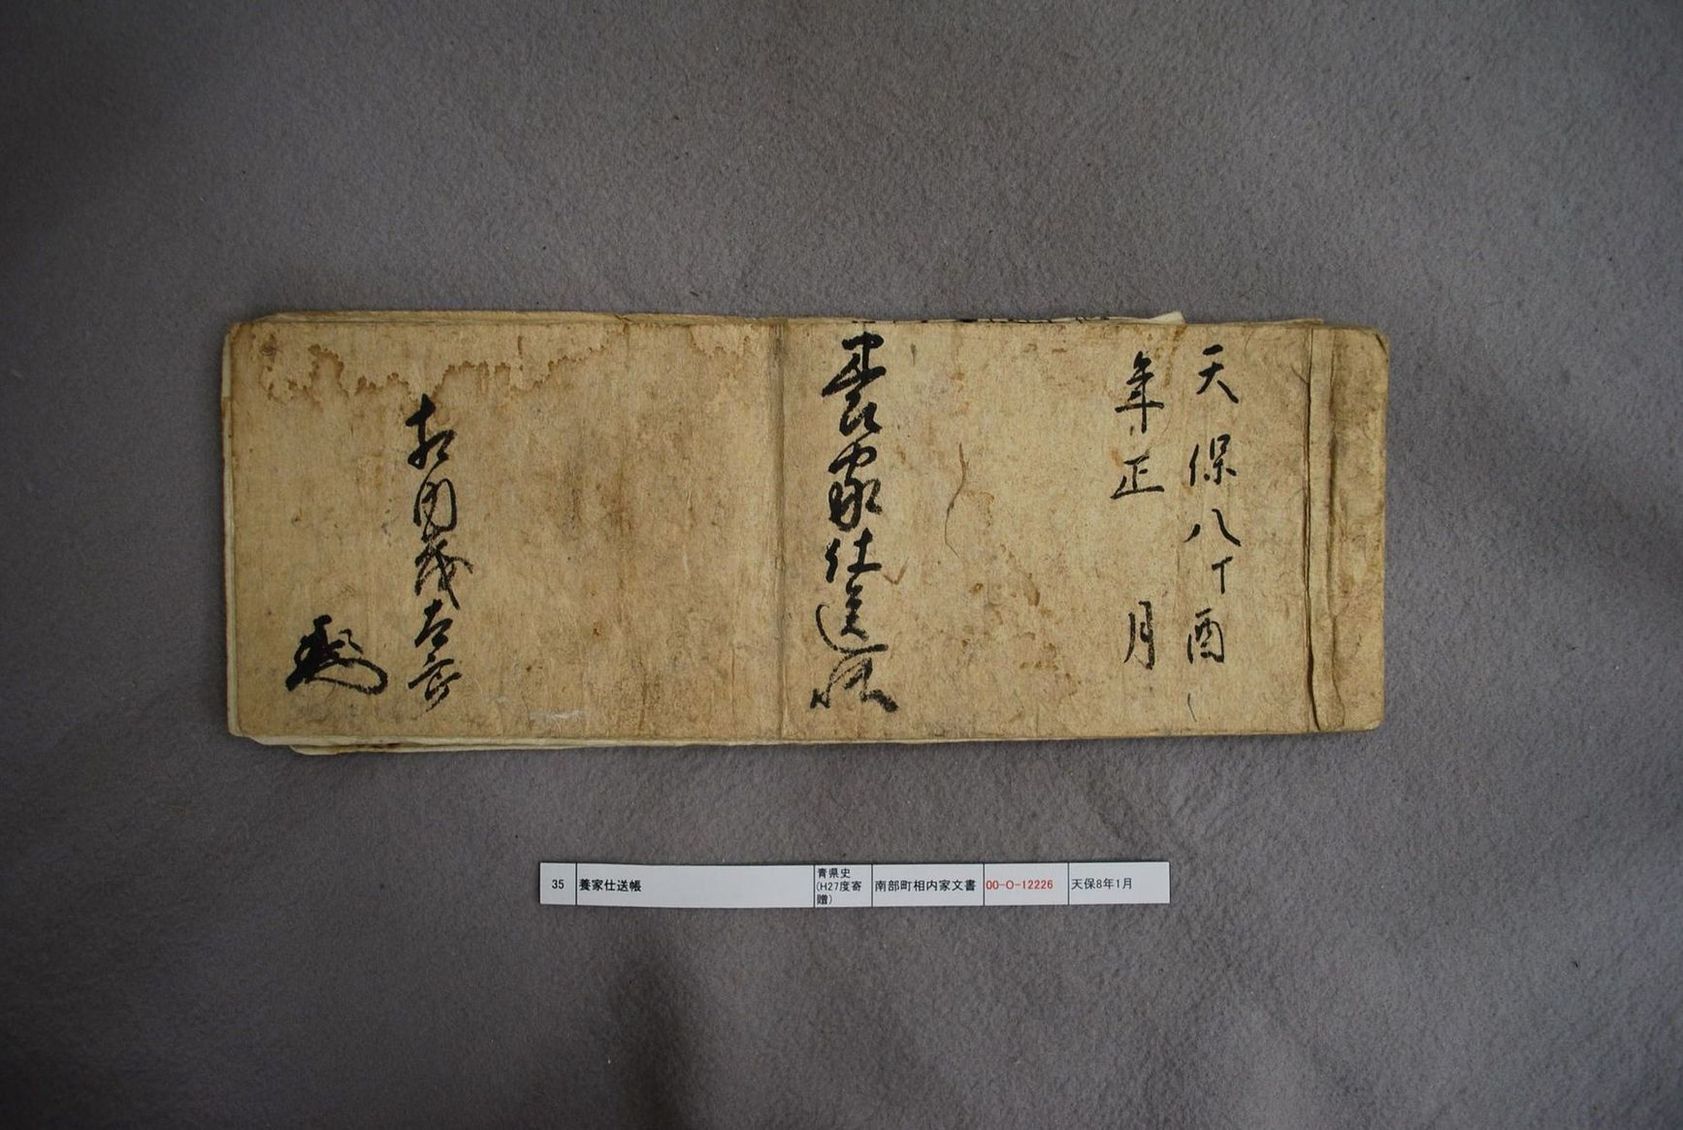 天保八丁酉
年正月
養家仕送帳
相内茂古
35
養家仕送帳
青県史
(H27度寄
贈)
南部町相内家文書
00-O-12226
天保8年1月